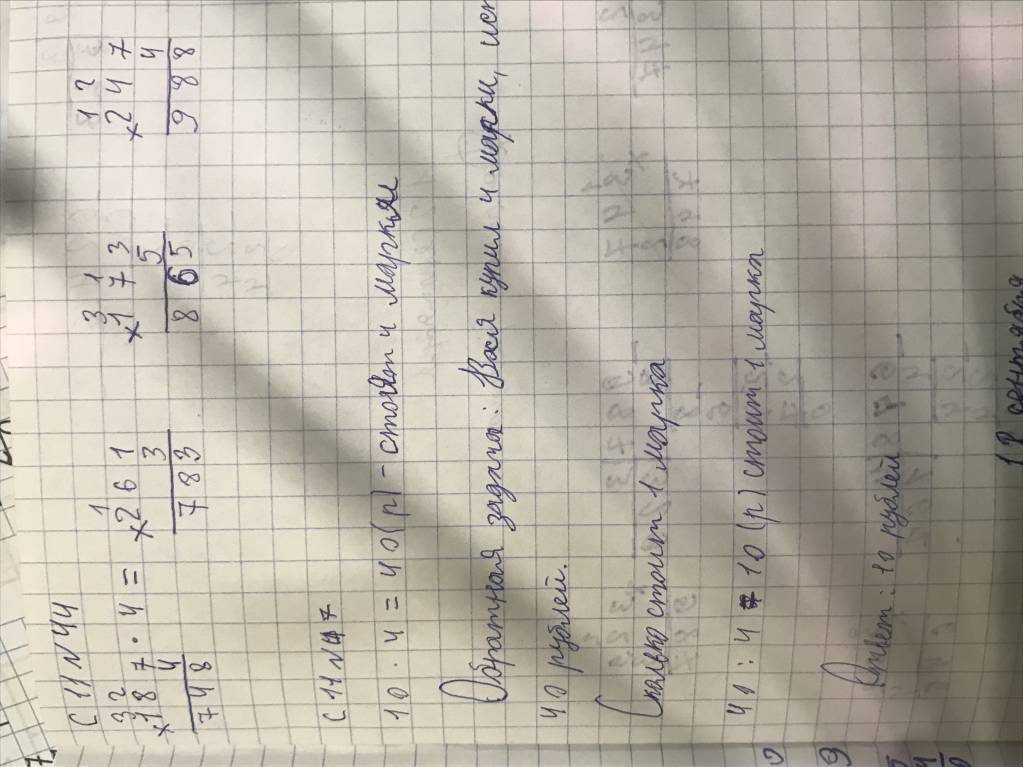 С 11 N 44
3 2 1 1 2
×1 8 7 · 4 = ×2 6 1 ×1 7 3 ×2 4 7
4 3 5 4
7 4 8 7 8 3 8 6 5 9 8 8
С 11 N 47
10 · 4 = 40 (р) - стоят 4 марки
Обратная задача: Вася купил 4 марки, ист
40 рублей.
Сколько стоит 1 марка
40 : 4 = 10 (р) стоит 1 марка
Ответ: 10 рублей
сентября